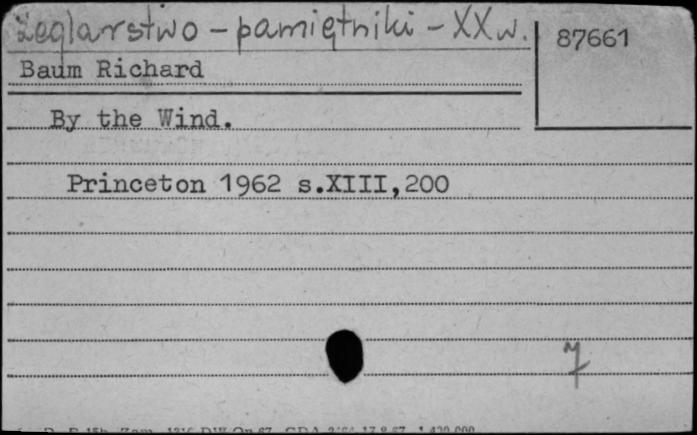 Żeglarstwo - pamiętniki - XX w.
87661
Baum Richard
By the Wind.
Princeton 1962 s.XIII,200
7